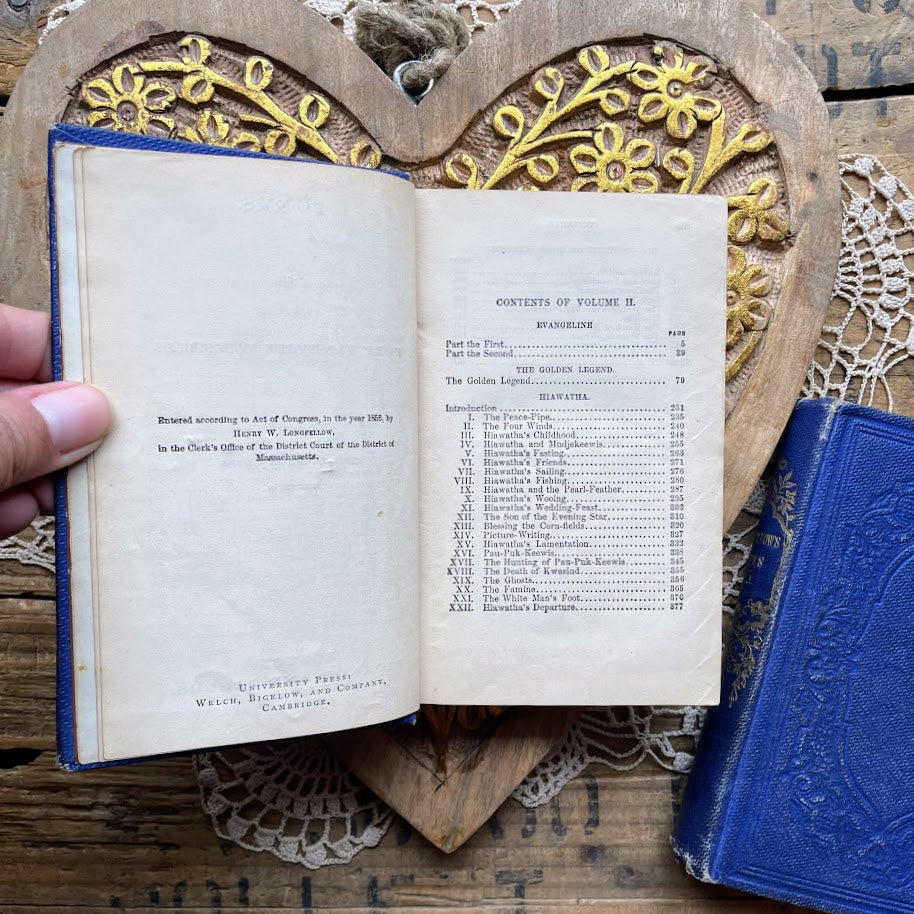 Entered according to Act of Congress, in the year 1858, by
HENRY W. LONGFELLOW,
in the Clerk's Office of the District Court of the District of
Massachusetts.
UNIVERSITY PRESS:
WELCH, BIGELOW, AND COMPANY,
CAMBRIDGE.
CONTENTS OF VOLUME II.
EVANGELINE
PAGE
Part the First 5
Part the Second 39
THE GOLDEN LEGEND.
The Golden Legend 79
HIAWATHA.
Introduction 231
I. The Peace-Pipe 235
II. The Four Winds 240
III. Hiawatha's Childhood 248
IV. Hiawatha and Mudjekeewis 255
V. Hiawatha's Fasting 263
VI. Hiawatha's Friends 271
VII. Hiawatha's Sailing 276
VIII. Hiawatha's Fishing 280
IX. Hiawatha and the Pearl-Feather 287
X. Hiawatha's Wooing 295
XI. Hiawatha's Wedding-Feast 303
XII. The Son of the Evening Star 310
XIII. Blessing the Corn-fields 320
XIV. Picture-Writing 327
XV. Hiawatha's Lamentation 332
XVI. Pau-Puk-Keewis 338
XVII. The Hunting of Pau-Puk-Keewis 345
XVIII. The Death of Kwasind 355
XIX. The Ghosts 356
XX. The Famine 365
XXI. The White Man's Foot 370
XXII. Hiawatha's Departure 377